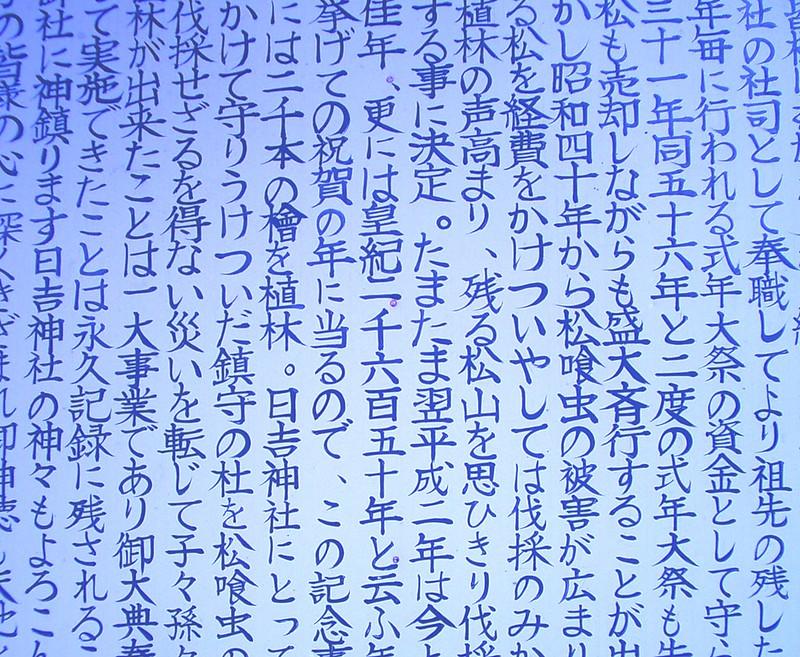 社の社司として奉職してより祖先の残した
年毎に行われる式年大祭の資金として守ら
三十一年同五十六年と二度の式年大祭も
松も売却しながらも盛大斉行することが出
かし昭和四十年から松喰虫の被害が広まり
る松を経費をかけついやしては伐採のみか
植林の声高まり、残る松山を思ひきり伐採
する事に決定。たまたま翌平成二年は今
佳年、更には皇紀二千六百五十年と云ふ年
挙げての祝賀の年に当るので、この記念事
には二千本の檜を植林。日吉神社にとって
かけて守りうけついだ鎮守の杜を松喰虫の
伐採せざるを得ない災いを転じて子々孫々
林が出来たことは一大事業であり御大典奉
て実施できたことは永久記録に残されるこ
社に神鎮ります日吉神社の神々もよろこん
の皆様の心に深く